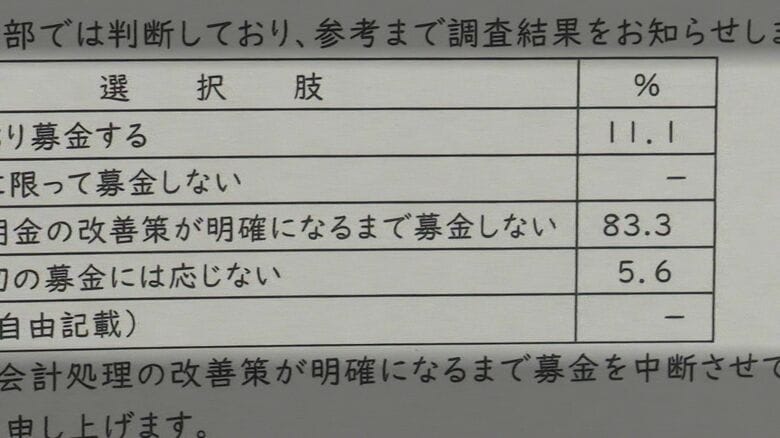 部では判断しており、参考まで調査結果をお知らせしま
選択肢 %
り募金する 11.1
に限って募金しない －
金の改善策が明確になるまで募金しない 83.3
の募金には応じない 5.6
自由記載） －
会計処理の改善策が明確になるまで募金を中断させて
申し上げます。